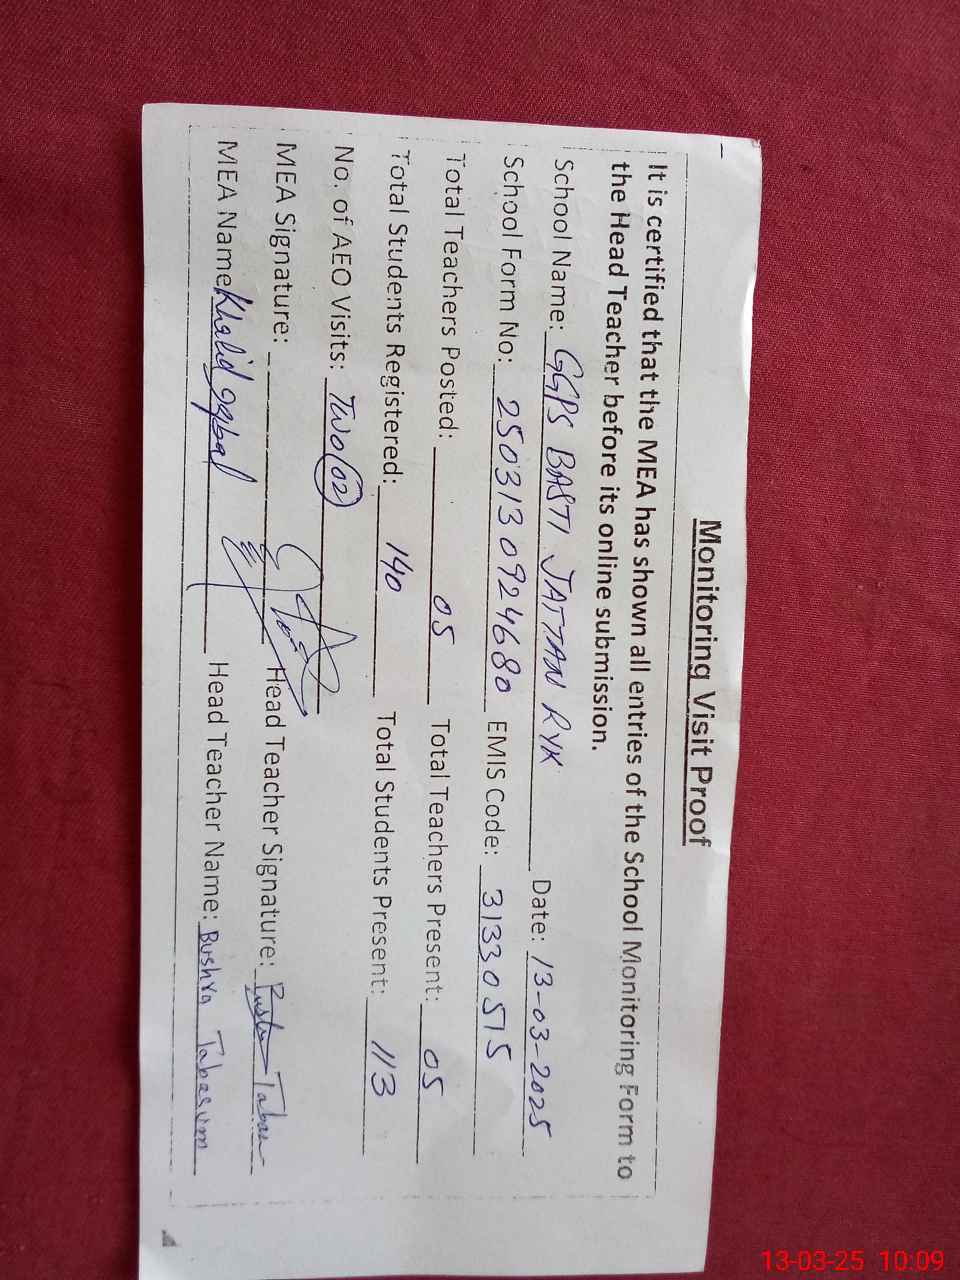 Monitoring Visit Proof
It is certified that the MEA has shown all entries of the School Monitoring Form to
the Head Teacher before its online submission.
School Name: GGPS BASTI JATTAN RYK Date: 13-03-2025
School Form No: 250313 0924680 EMIS Code: 31330515
Total Teachers Posted: 05 Total Teachers Present: 05
Total Students Registered: 140 Total Students Present: 113
No. of AEO Visits: Two 02
MEA Signature: Head Teacher Signature:
MEA Name Khalid Iqbal Head Teacher Name: Bushra Tabasum
13-03-25 10:09